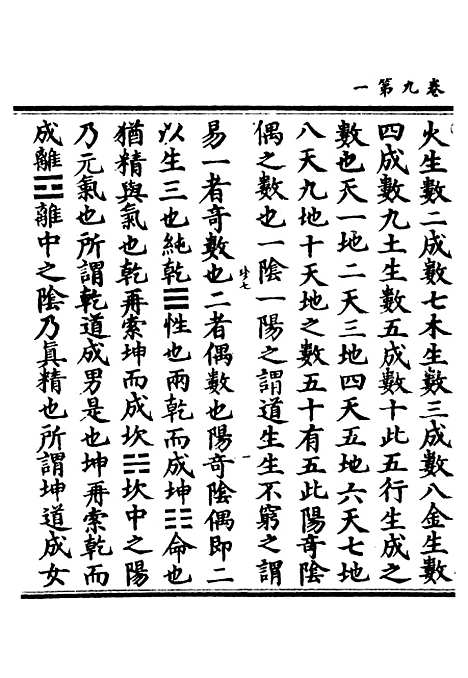 卷九第一
火生數二成數七木生數三成數八金生數
四成數九土生數五成數十此五行生成之
數也天一地二天三地四天五地六天七地
八天九地十天地之數五十有五此陽奇陰
偶之數也一陰一陽之謂道生生不窮之謂
易一者奇數也二者偶數也陽奇陰偶即二
以生三也純乾☰性也兩乾而成坤☷命也
猶精與氣也乾再索坤而成坎☵坎中之陽
乃元氣也所謂乾道成男是也坤再索乾而
成離☲離中之陰乃眞精也所謂坤道成女